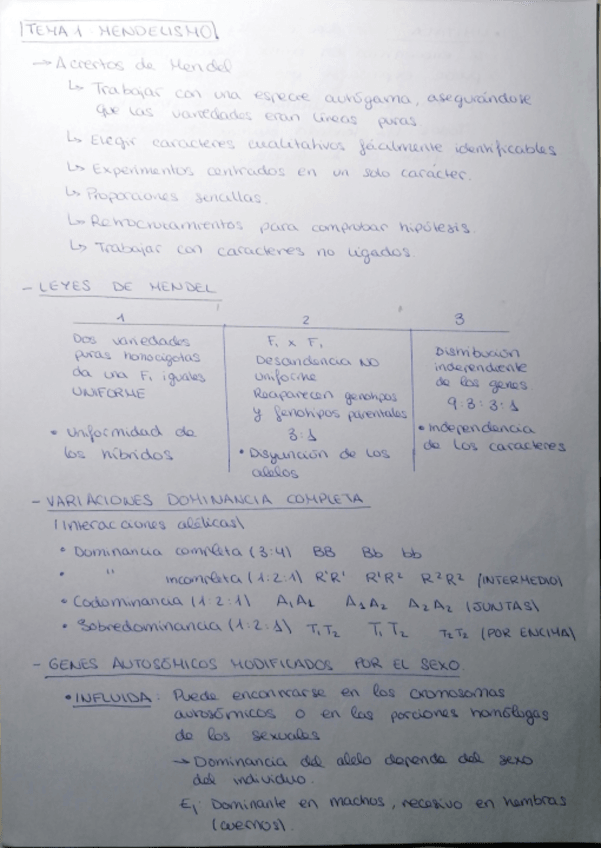 TEMA 1 MENDELISMO
→ Aciertos de Mendel
↳ Trabajar con una especie autógama, asegurándose
que las variedades eran líneas puras
↳ Elegir caracteres cualitativos fácilmente identificables
↳ Experimentos centrados en un solo carácter.
↳ Proporciones sencillas.
↳ Retrocruzamientos para comprobar hipótesis.
↳ Trabajar con caracteres no ligados.
- LEYES DE MENDEL
1
Dos variedades
puras homocigotas
da una F₁ iguales
UNIFORME
• Uniformidad de
los híbridos
2
F₁ x F₁
Descendencia NO
uniforme
Reaparecen genotipos
y fenotipos parentales
3:1
• Disyunción de los
alelos
3
Distribución
independiente
de los genes
9:3:3:1
• Independencia
de los caracteres
- VARIACIONES DOMINANCIA COMPLETA
(Interacciones alélicas)
• Dominancia completa (3:1) BB Bb bb
• " incompleta (1:2:1) R¹R¹ R¹R² R²R² (INTERMEDIO)
• Codominancia (1:2:1) A₁A₁ A₁A₂ A₂A₂ (JUNTAS)
• Sobredominancia (1:2:1) T₁T₂ T₁T₂ T₂T₂ (POR ENCIMA)
- GENES AUTOSÓMICOS MODIFICADOS POR EL SEXO.
• INFLUIDA: Puede encontrarse en los cromosomas
autosómicos o en las porciones homólogas
de los sexuales
→ Dominancia del alelo depende del sexo
del individuo.
Ej: Dominante en machos, recesivo en hembras
(cuernos).